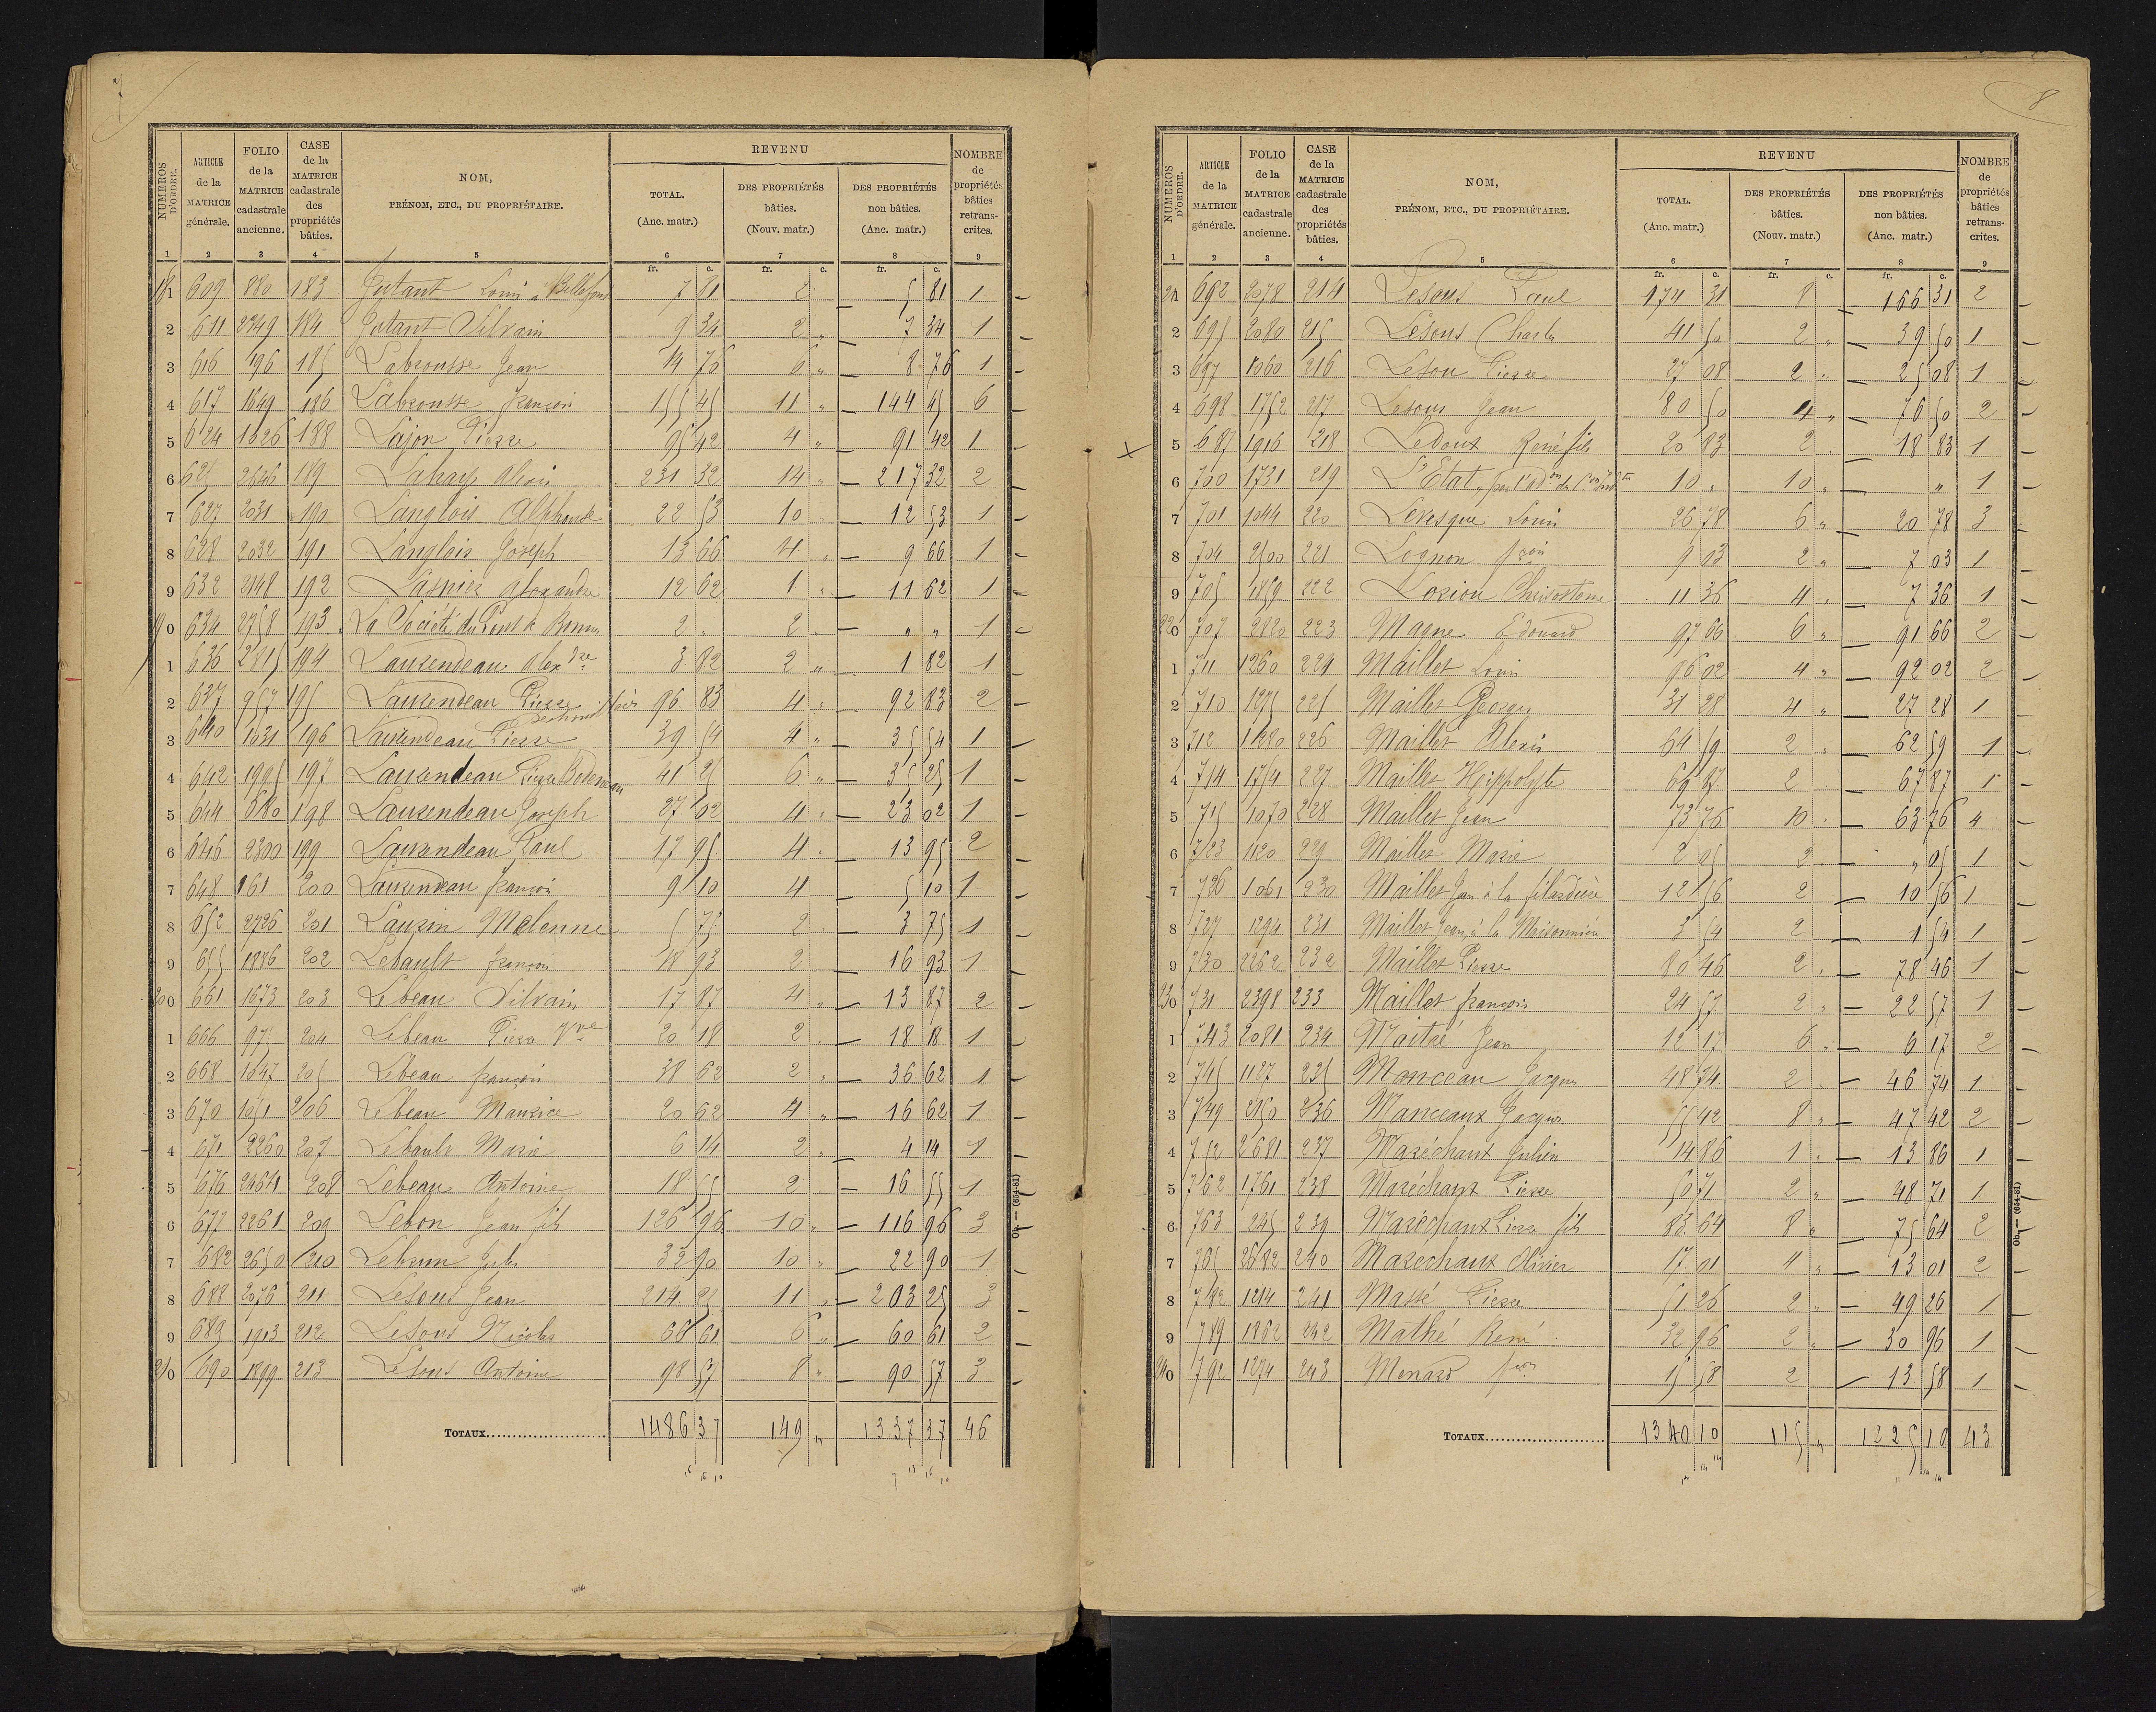 8
NUMÉROS D'ORDRE. ARTICLE de la MATRICE générale. FOLIO de la MATRICE cadastrale ancienne. CASE de la MATRICE cadastrale des propriétés bâties. NOM, PRÉNOM, ETC., DU PROPRIÉTAIRE. REVENU TOTAL. (Anc. matr.) DES PROPRIÉTÉS bâties. (Nouv. matr.) DES PROPRIÉTÉS non bâties. (Anc. matr.) NOMBRE de propriétés bâties retranscrites.
1 2 3 4 5 6 7 8 9
fr. c. fr. c. fr. c.
181 609 880 183 Jutant Louis à Bellefond 7 81 2 5 81 1
2 611 2349 184 Jutant Silvain 9 34 2 " 7 34 1
3 616 196 185 Labrousse Jean 14 76 6 " 8 76 1
4 617 1649 186 Labrousse françois 155 45 11 " 144 45 6
5 624 1626 188 Lajon Pierre 95 42 4 " 91 42 1
6 625 2646 189 231 32 14 " 217 32 2
7 627 2031 190 Langlois Alphonse 22 53 10 " 12 53 1
8 628 2032 191 Langlois Joseph 13 66 4 " 9 66 1
9 632 2148 192 Lasnier Alexandre 12 62 1 " 11 62 1
190 634 2758 193 La Société du Pont de 2 " 2 " " " 1
1 636 2815 194 Laurendeau Alexdre 3 82 2 " 1 82 1
2 637 957 195 Laurendeau Pierre 96 83 4 " 92 83 2
3 640 1031 196 Laurendeau Pierre 39 54 4 " 35 54 1
4 642 1995 197 Laurendeau Pierre 41 25 6 " 35 25 1
5 644 680 198 Laurendeau Joseph 27 02 4 " 23 02 1
6 646 2300 199 Laurendeau Paul 17 95 4 " 13 95 2
7 648 161 200 Laurendeau françois 9 10 4 5 10 1
8 652 2726 201 Lauzin Melenne 5 75 2 " 3 75 1
9 655 1886 202 Lebault françois 18 93 2 16 93 1
200 661 1673 203 Lebeau Silvain 17 87 4 " 13 87 2
1 666 975 204 Lebeau Pierre Vve 20 18 2 " 18 18 1
2 668 1647 205 Lebeau françois 38 62 2 " 36 62 1
3 670 1051 206 Lebeau Maurice 20 62 4 " 16 62 1
4 671 2260 207 Lebault Marie 6 14 2 " 4 14 1
5 676 208 Lebeau Antoine 18 55 2 16 55 1
6 677 2261 209 Lebon Jean fils 126 96 10 " 116 96 3
7 682 2650 210 Lebrun Jules 32 90 10 " 22 90 1
8 688 2076 211 Lesous Jean 214 25 11 " 203 25 3
9 689 1913 212 Lesous Nicolas 66 61 6 " 60 61 2
210 690 1899 213 Lesous Antoine 98 57 8 " 90 57 3
TOTAUX 1486 37 149 " 1337 37 46
Ob. — (654-81)
NUMÉROS D'ORDRE. ARTICLE de la MATRICE générale. FOLIO de la MATRICE cadastrale ancienne. CASE de la MATRICE cadastrale des propriétés bâties. NOM, PRÉNOM, ETC., DU PROPRIÉTAIRE. REVENU TOTAL. (Anc. matr.) DES PROPRIÉTÉS bâties. (Nouv. matr.) DES PROPRIÉTÉS non bâties. (Anc. matr.) NOMBRE de propriétés bâties retranscrites.
1 2 3 4 5 6 7 8 9
fr. c. fr. c. fr. c.
211 692 2078 214 Lesous Paul 174 31 8 166 31 2
2 695 2080 215 Lesous Charles 41 50 2 " 39 50 1
3 697 1060 216 Lesou Pierre 27 08 2 " 25 08 1
4 698 1752 217 Lesous Jean 80 50 4 " 76 50 2
5 687 1916 218 Ledoux René fils 20 83 2 18 83 1
6 700 1731 219 L'Etat, 10 " 10 " " 1
7 701 1044 220 Levesque Louis 26 78 6 " 20 78 3
8 704 2500 221 Lognon fçois 9 03 2 " 7 03 1
9 705 1859 222 Lorion Chrisostome 11 36 4 " 7 36 1
220 707 2820 223 Magne Edouard 97 66 6 " 91 66 2
1 711 1260 224 Maillet Louis 96 02 4 " 92 02 2
2 710 1275 225 Maillet Georges 31 28 4 " 27 28 1
3 712 1280 226 Maillet Alexis 64 59 2 " 62 59 1
4 714 1754 227 Maillet Hippolyte 69 87 2 67 87 1
5 715 1070 228 Maillet Jean 73 76 10 " 63 76 4
6 723 1120 229 Maillet Marie 2 05 2 " " 05 1
7 726 1061 230 Maillet Jean à la 12 56 2 10 56 1
8 727 1294 231 Maillet Jean, à la Maisonnière 3 54 2 1 54 1
9 730 2262 232 Maillet Pierre 80 46 2 " 78 46 1
230 731 2398 233 Maillet françois 24 57 2 " 22 57 1
1 743 2081 234 Maitré Jean 12 17 6 " 6 17 2
2 745 1127 235 Manceau Jacques 48 74 2 " 46 74 1
3 749 2150 236 Manceaux Jacques 55 42 8 " 47 42 2
4 752 2681 237 Maréchaux Julien 14 86 1 " 13 86 1
5 762 1761 238 Maréchaux Pierre 50 71 2 " 48 71 1
6 763 245 239 Maréchaux Pierre fils 83 64 8 " 75 64 2
7 765 2682 240 Maréchaux Olivier 17 01 4 " 13 01 2
8 782 1214 241 Massé Pierre 51 26 2 " 49 26 1
9 789 1862 242 Mathé René 32 96 2 " 30 96 1
240 792 1274 243 Menard fçois 15 58 2 13 58 1
TOTAUX 1340 10 115 " 1225 10 43
Ob. — (654-81)